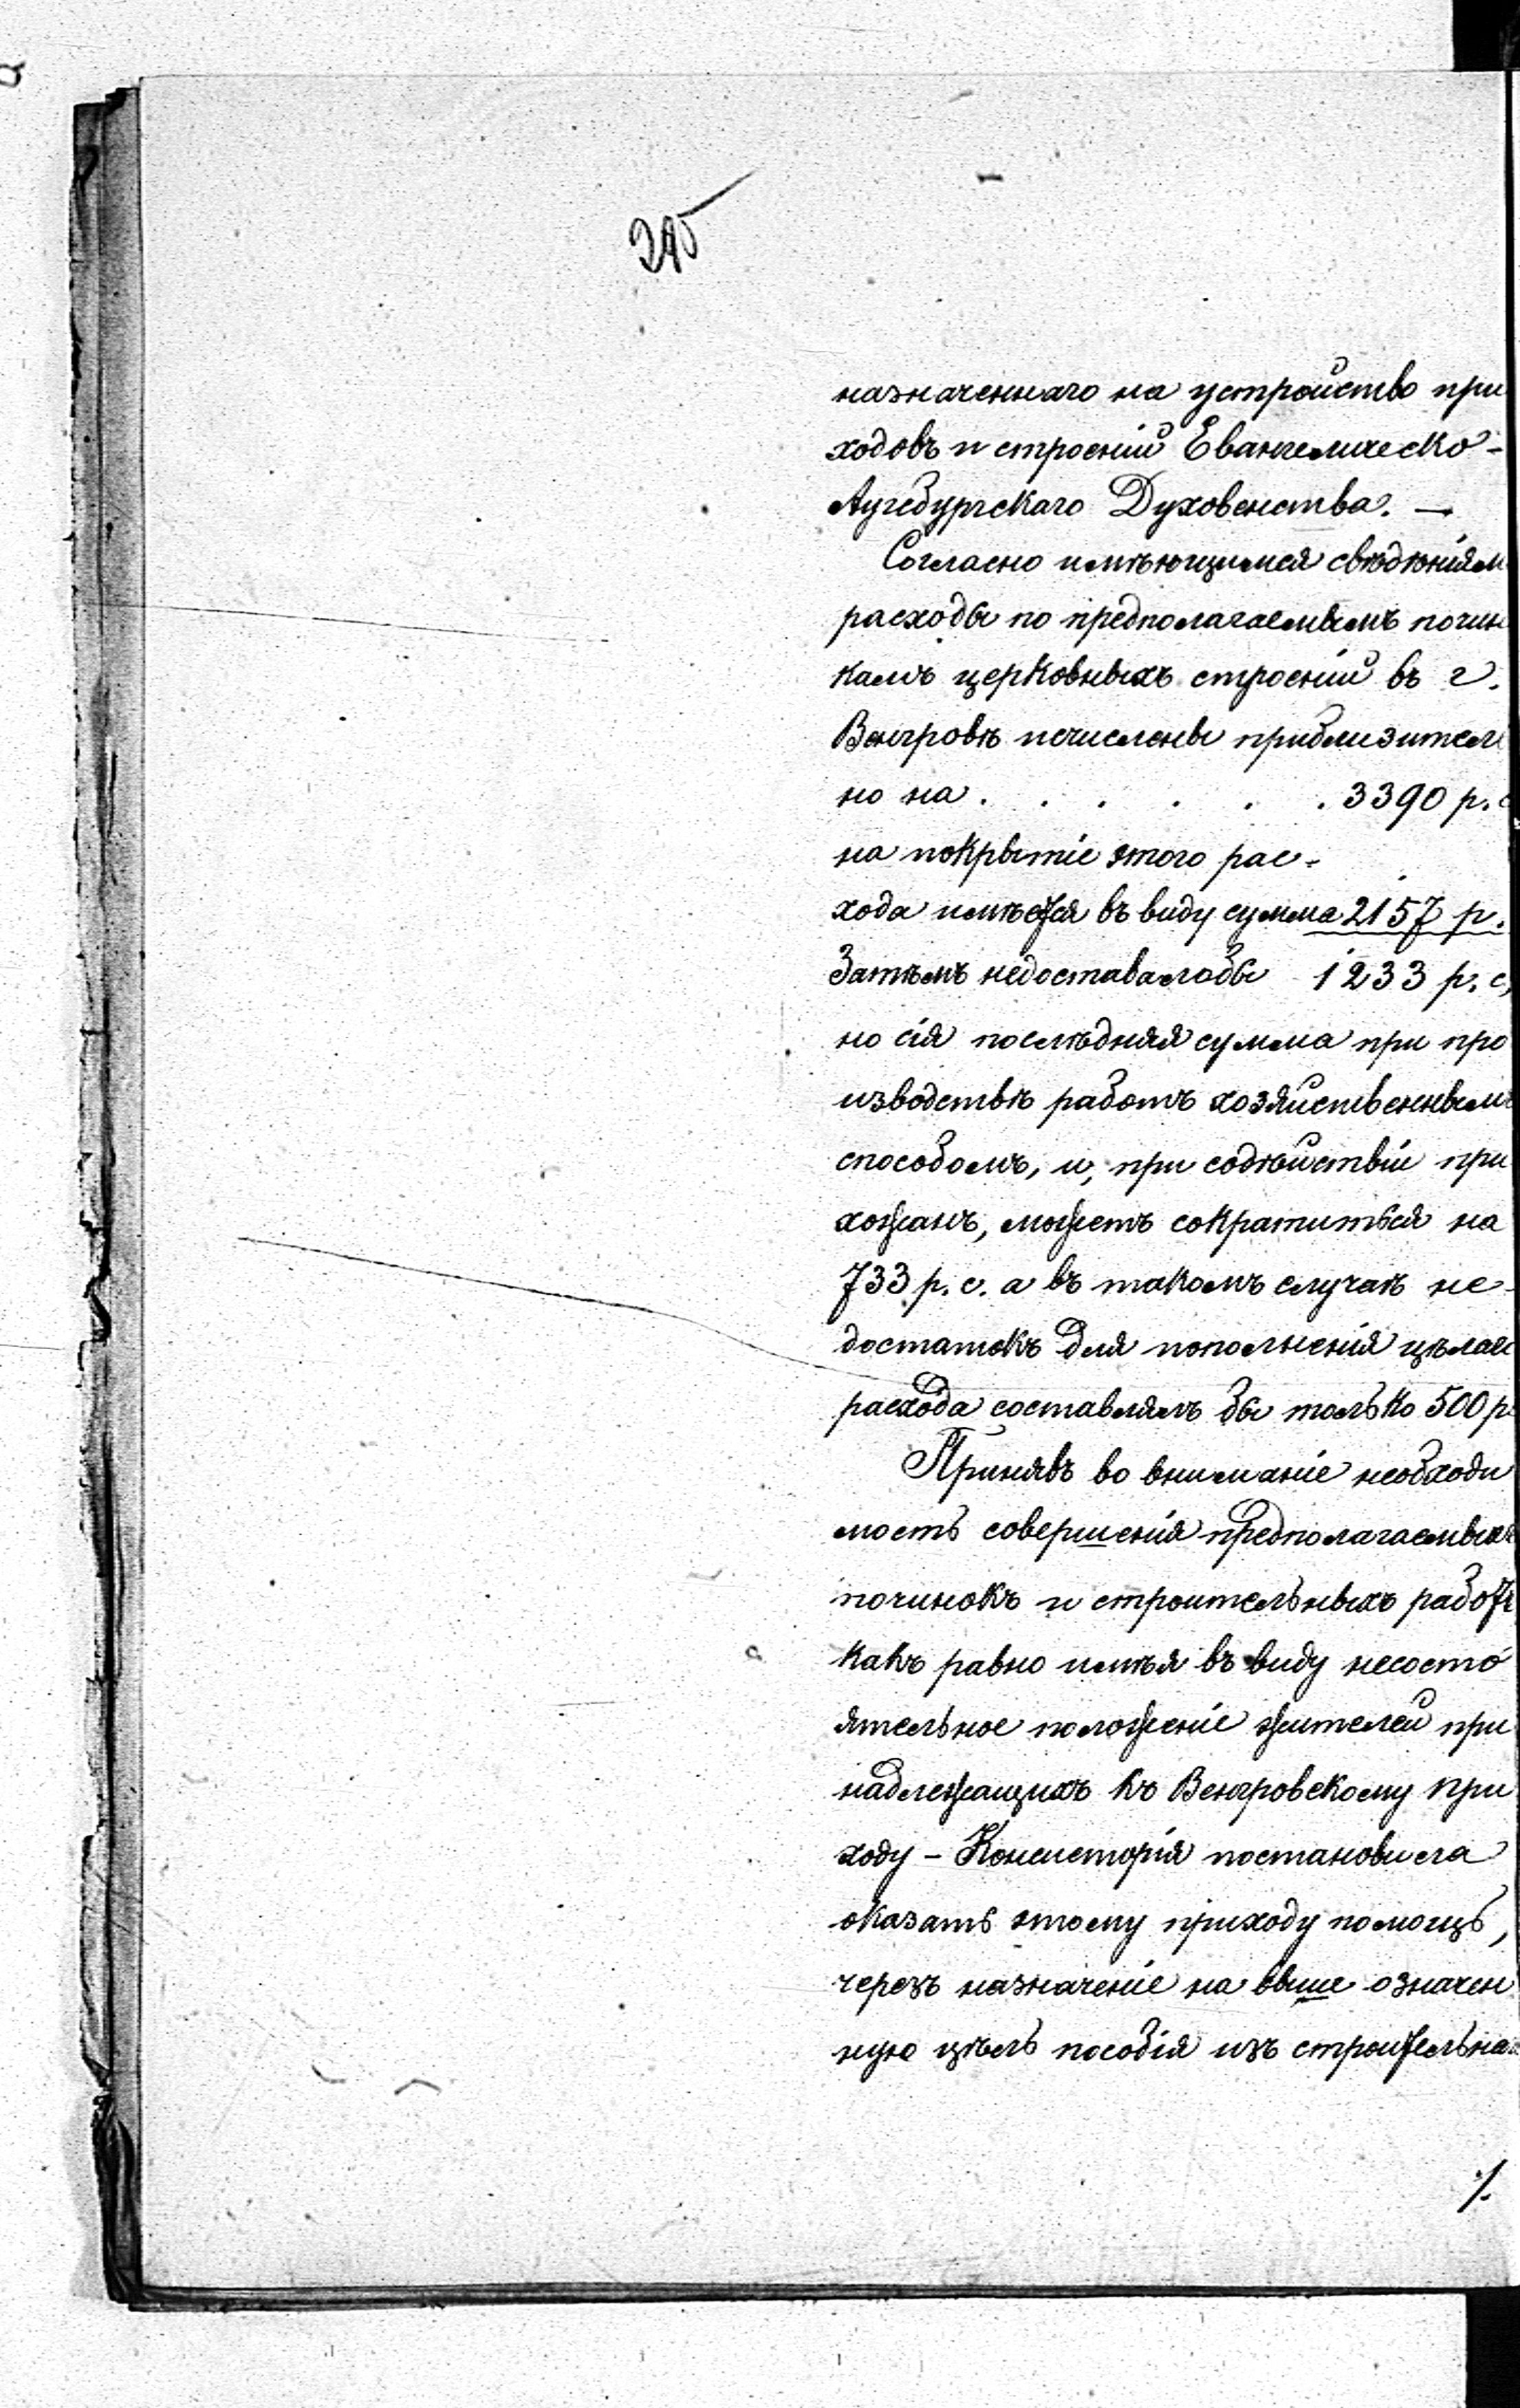 245
назначеннаго на устройство при
ходовъ и строеній Евангелическо-
Аугсбургскаго Духовенства. —
Согласно имѣющимся свѣдѣніям
расходы по предполагаемымъ почин
камъ церковныхъ строеній въ г.
Венгровѣ исчислены приблизитель
но на . . . . . . 3390 р. с
на покрытіе этого рас-
хода имѣется въ виду сумма 2157 р.
Затѣмъ недоставалобы 1233 р. с,
но сія послѣдняя сумма при про
изводствѣ работъ хозяйственнымъ
способомъ, и, при содѣйствіи при
хожанъ, можетъ сократиться на
733 р. с. а въ такомъ случаѣ не-
достатокъ для пополненія цѣлаго
расхода составлялъ бы только 500 р
Принявъ во вниманіе необходи
мость совершенія предполагаемыхъ
починокъ и строительныхъ работъ
какъ равно имѣя въ виду несосто
ятельное положеніе жителей при
надлежащихъ къ Венгровскому при
ходу – Консисторія постановила
оказать этому приходу помощь,
черезъ назначеніе на выше означен
ную цѣль пособія изъ строительна
./.